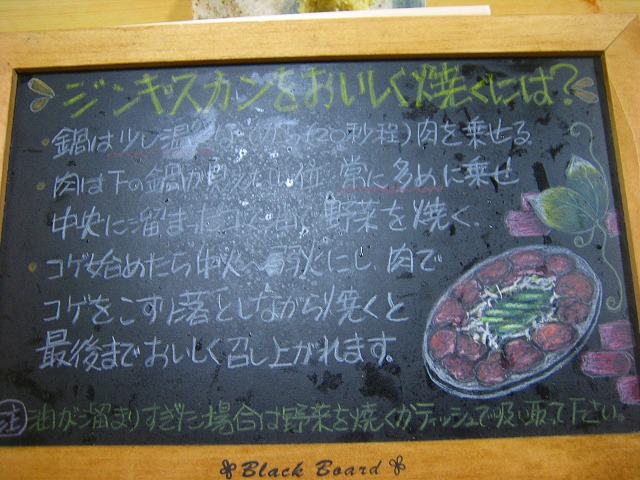 ジンギスカンをおいしく焼くには?
鍋は少し温 秒程)肉を乗せる
肉は下の鍋が 常に多めに乗せ
中央に溜まっ 野菜を焼く。
コゲ始めたら中火〜弱火にし、肉で
コゲをこすり落としながら焼くと
最後までおいしく召し上がれます。
注 油が溜まりすぎた場合は野菜を焼くかティッシュで吸い取って下さい。
Black Board